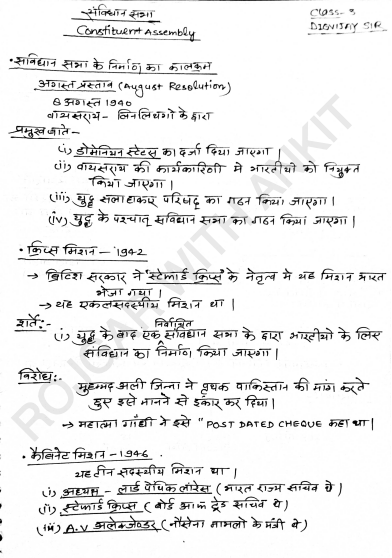 संविधान सभा
Constituent Assembly
CLASS- 3
DIGVIJAY SIR
• संविधान सभा के निर्माण का कालक्रम
अगस्त प्रस्ताव (August Resolution)
8 अगस्त 1940
वायसराय- लिनलिथगो के द्वारा
प्रमुख बाते-
(i) डोमेनियन स्टेटस का दर्जा दिया जाएगा।
(ii) वायसराय की कार्यकारिणी मे भारतीयो को नियुक्त
किया जाएगा।
(iii) युद्ध सलाहकार परिषद् का गठन किया जाएगा।
(iv) युद्ध के पश्चात् संविधान सभा का गठन किया जाएगा।
• क्रिप्स मिशन - 1942
→ ब्रिटिश सरकार ने 'स्टेफार्ड क्रिप्स' के नेतृत्व मे यह मिशन भारत
भेजा गया।
→ यह एकलसदस्यीय मिशन था।
शर्ते:-
(i) युद्ध के बाद एक निर्वाचित संविधान सभा के द्वारा भारतीयो के लिए
संविधान का निर्माण किया जाएगा।
विरोध:-
मुहम्मद अली जिन्ना ने पृथक पाकिस्तान की मांग करते
हुए इसे मानने से इंकार कर दिया।
→ महात्मा गाँधी ने इसे "POST DATED CHEQUE कहा था।
• कैबिनेट मिशन - 1946
यह तीन सदस्यीय मिशन था।
(i) अध्यक्ष - लार्ड पैथिक लॉरेंस (भारत राज्य सचिव थे)
(ii) स्टेफार्ड क्रिप्स (बोर्ड आफ ट्रेड सचिव थे)
(iii) A.V अलेक्जेण्डर (नौसेना मामलो के मंत्री थे)